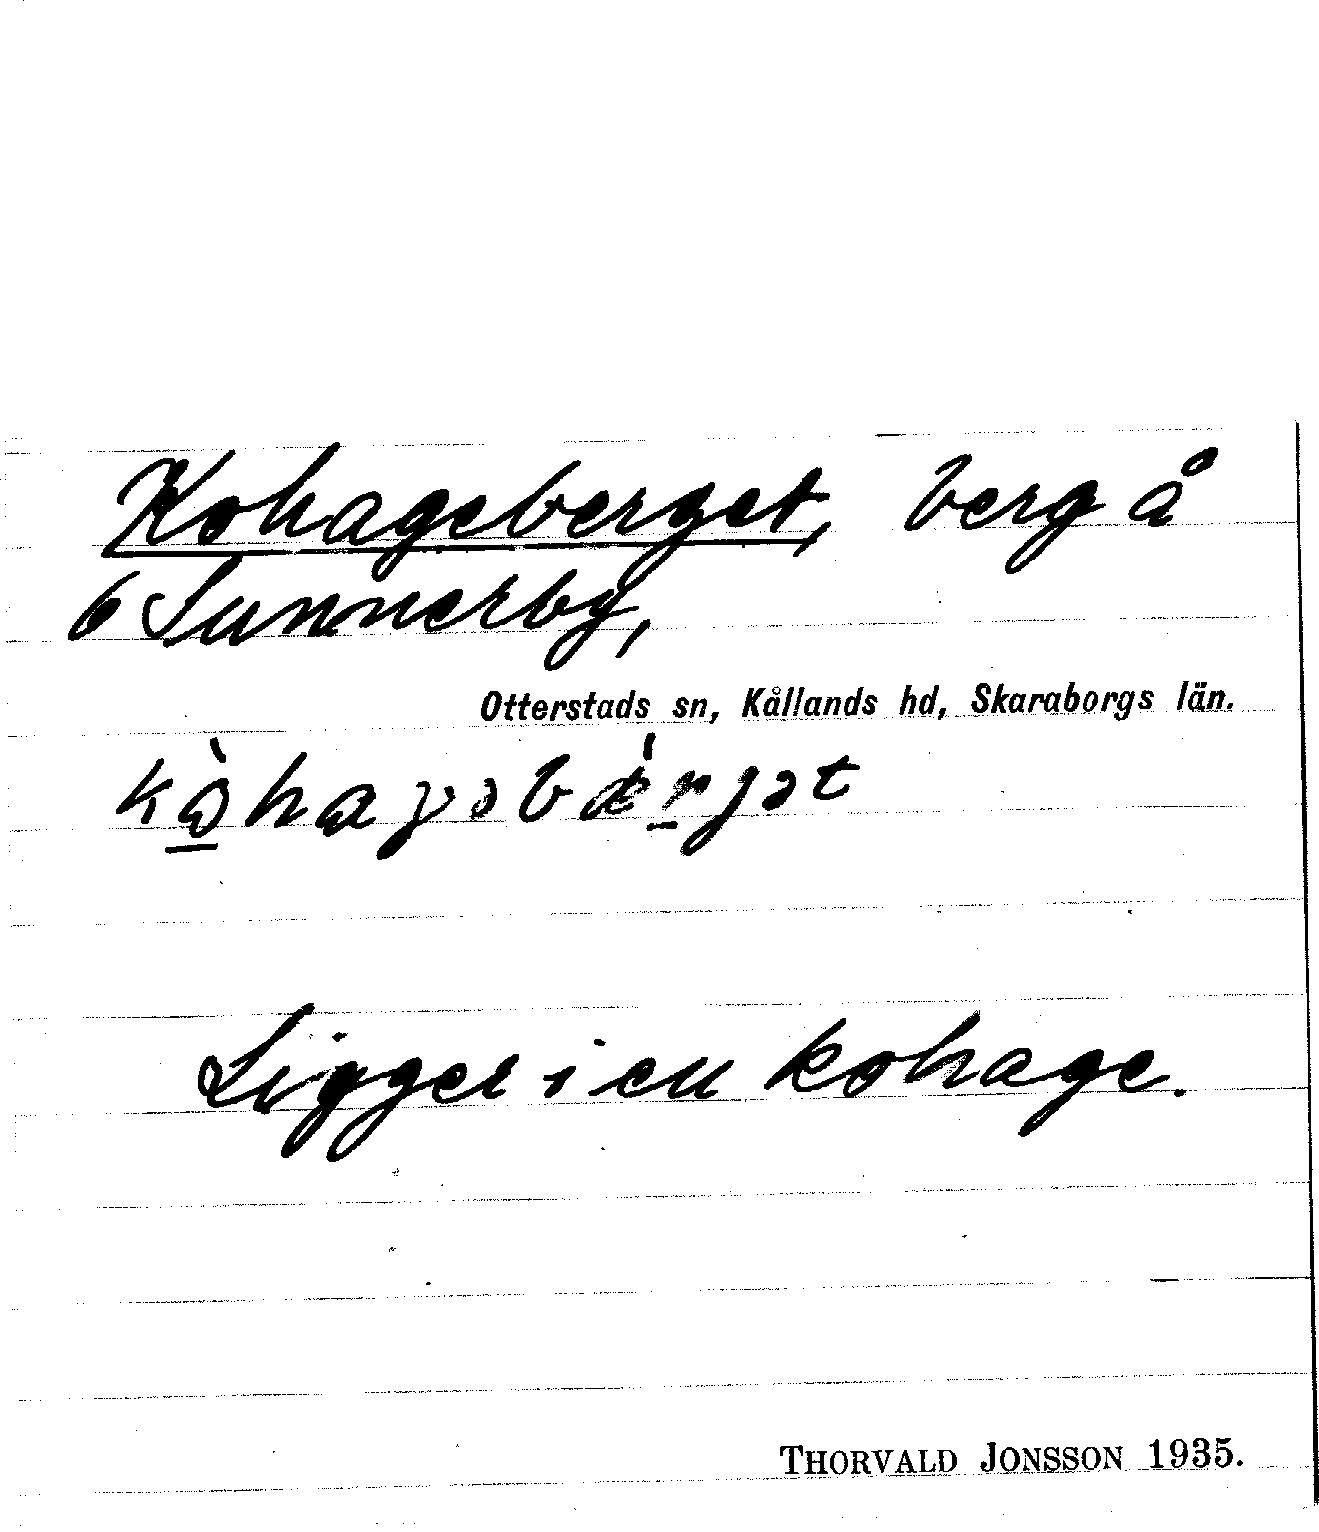 Kohageberget, berg å
6 Sunnerby,
Otterstads sn, Kållands hd, Skaraborgs län.
kò̱hagəbǽr̠jət
Ligger i en kohage.
THORVALD JONSSON 1935.